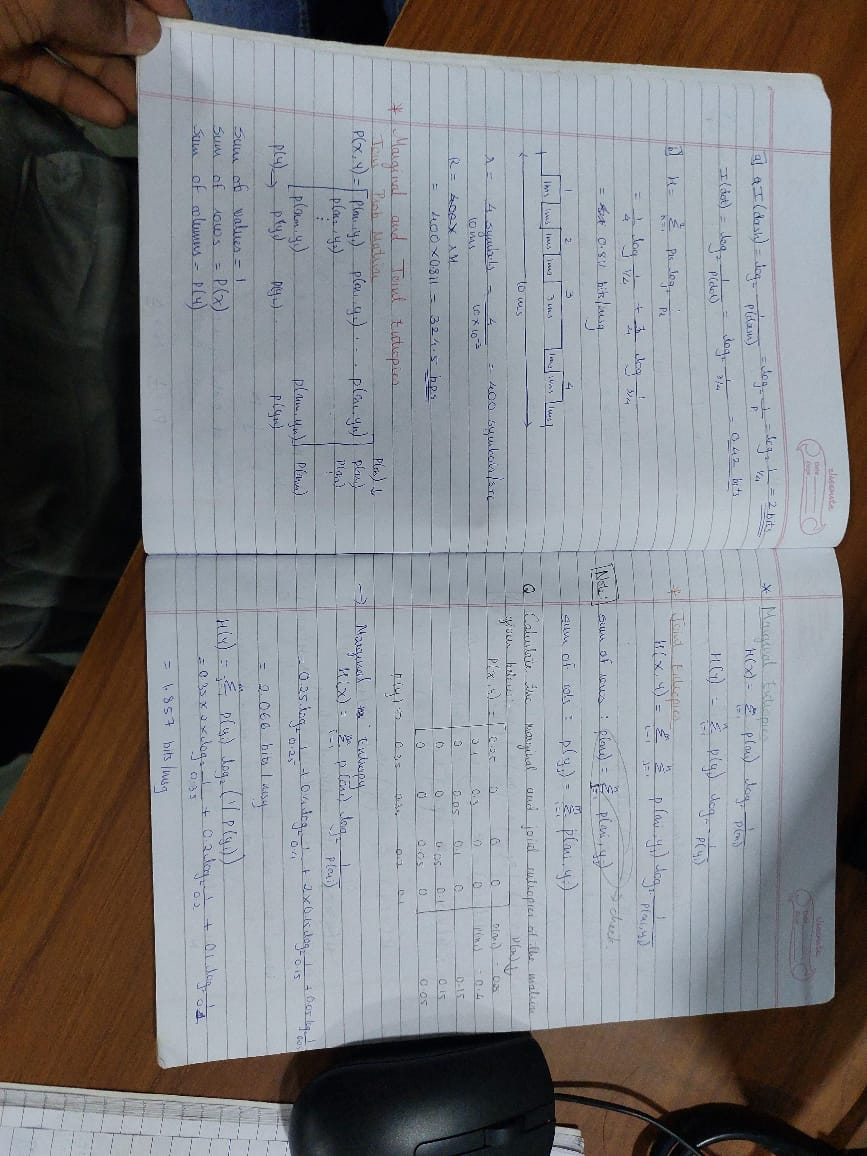 classmate
Date
Page
a] I(dash) = log₂ 1/P(dash) = log₂ 1/P = log₂ 1/1/4 = 2 bits
I(dot) = log₂ 1/P(dot) = log₂ 1/3/4 = 0.42 bits
b] H = Σ pk log₂ 1/pk
= 1/4 log 1/1/4 + 3/4 log 1/3/4
= 0.811 bits/msg
1 2 3 4
1ms 1ms 1ms 1ms 3ms 1ms 1ms 1ms
10 ms
r = 4 symbols/10ms = 4/10×10⁻³ = 400 symbols/sec
R = 400 ×
= 400 × 0.811 = 324.5 bps
* Marginal and Joint Entropies
Joint Prob Matrix
P(x)↓
P(X,Y) = [ P(x1,y1) p(x1,y2) ... p(x1,yn) ] p(x1)
p(x2,y1) P(x2)
⋮
p(xm,y1) p(xm,yn) P(xm)
P(y) → p(y1) p(y2) ... p(yn)
Sum of values = 1
Sum of rows = P(x)
Sum of columns = P(y)
classmate
Date
Page
* Marginal Entropies
H(X) = Σ p(xi) log₂ 1/p(xi)
H(Y) = Σ p(yi) log₂ 1/P(yi)
* Joint Entropies
H(X,Y) = Σ Σ p(xi,yj) log₂ 1/P(xi,yj)
Note: sum of rows : p(xi) = Σ p(xi,yj) → check
sum of cols : p(yj) = Σ p(xi,yj)
Q Calculate the marginal and joint entropies of the matrix
given below: P(x)↓
P(X,Y) = [ 0.25 0 0 0 ] p(x1) = 0.25
0.1 0.3 0 0 p(x2) = 0.4
0 0.05 0.1 0 0.15
0 0 0.05 0.1 0.15
0 0 0.05 0 0.05
P(y) → 0.35 0.35 0.2 0.1
→ Marginal Entropy
H(X) = Σ p(xi) log₂ 1/P(xi)
= 0.25 log₂ 1/0.25 + 0.4 log₂ 1/0.4 + 2×0.15 log₂ 1/0.15 + 0.05 log 1/0.05
= 2.066 bits/msg
H(Y) = Σ p(yi) log₂ (1/P(yi))
= 0.35 × 2 × log₂ 1/0.35 + 0.2 log₂ 1/0.2 + 0.1 log₂ 1/0.1
= 1.857 bits/msg